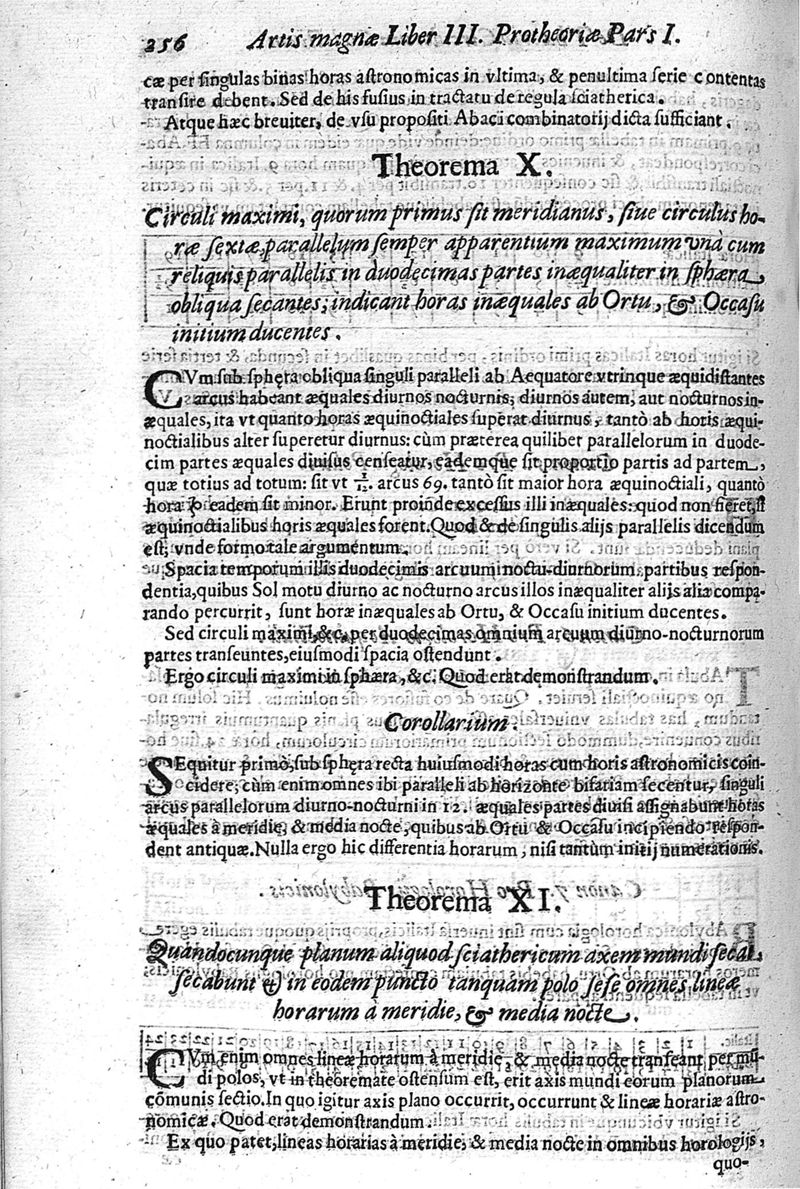 256 Artis magnæ Liber III. Protheoriæ Pars I.
cæ per singulas binas horas astronomicas in vltima, & penultima serie contentas
transire debent. Sed de his fusius in tractatu de regula sciatherica.
Atque hæc breuiter, de vsu propositi Abaci combinatorij dicta sufficiant.
Theorema X.
Circuli maximi, quorum primus sit meridianus, siue circulus ho-
ræ sextæ parallelum semper apparentium maximum vnà cum
reliquis parallelis in duodecimas partes inæqualiter in sphæra
obliqua secantes; indicant horas inæquales ab Ortu, & Occasu
initium ducentes.
CVm sub sphęra obliqua singuli paralleli ab Aequatore vtrinque æquidistantes
arcus habeant æquales diurnos nocturnis; diurnos autem, aut nocturnos in-
æquales, ita vt quanto horas æquinoctiales superat diurnus, tantò ab horis æqui-
noctialibus alter superetur diurnus: cùm præterea quilibet parallelorum in duode-
cim partes æquales diuisus censeatur, eademque sit proportio partis ad partem,
quæ totius ad totum: sit vt 1/12. arcus 69. tantò sit maior hora æquinoctiali, quantò
hora ♑ eadem sit minor. Erunt proinde excessus illi inæquales: quod non fieret, si
æquinoctialibus horis æquales forent. Quod & de singulis alijs parallelis dicendum
est; vnde formo tale argumentum.
Spacia temporum illis duodecimis arcuum noctu-diurnorum partibus respon-
dentia, quibus Sol motu diurno ac nocturno arcus illos inæqualiter alijs alia compa-
rando percurrit, sunt horæ inæquales ab Ortu, & Occasu initium ducentes.
Sed circuli maximi, &c. per duodecimas omnium arcuum diurno-nocturnorum
partes transeuntes, eiusmodi spacia ostendunt.
Ergo circuli maximi in sphæra, &c. Quod erat demonstrandum.
Corollarium.
SEquitur primò, sub sphęra recta huiusmodi horas cum horis astronomicis coin-
cidere; cùm enim omnes ibi paralleli ab horizonte bifariam secentur, singuli
arcus parallelorum diurno-nocturni in 12. æquales partes diuisi assignabunt horas
æquales à meridie, & media nocte, quibus ab Ortu & Occasu incipiendo respon-
dent antiquæ. Nulla ergo hic differentia horarum, nisi tantùm initij numerationis.
Theorema XI.
Quandocunque planum aliquod sciathericum axem mundi secat,
secabunt & in eodem puncto tanquam polo sese omnes lineæ
horarum à meridie, & media nocte.
CVm enim omnes lineæ horarum à meridie, & media nocte transeant per mũ-
di polos, vt in theoremate ostensum est, erit axis mundi eorum planorum
cõmunis sectio. In quo igitur axis plano occurrit, occurrunt & lineæ horariæ astro-
nomicæ. Quod erat demonstrandum.
Ex quo patet, lineas horarias à meridie, & media nocte in omnibus horologijs,
quo-